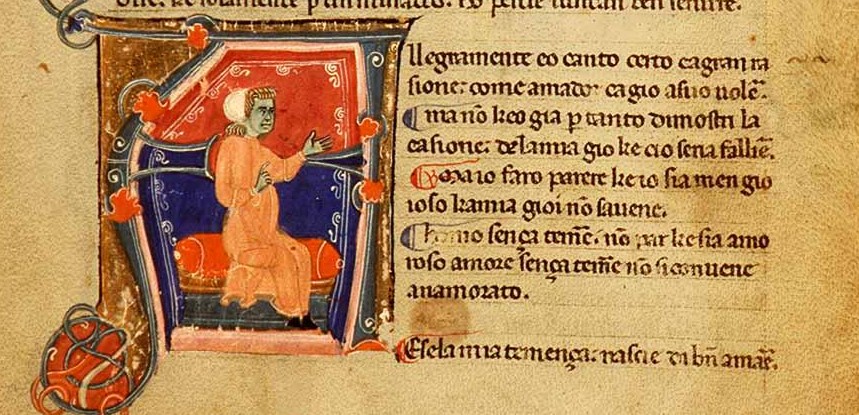 ke solamente p
Allegramente eo canto certo cagran ra
sione: come amador cagio asuo uolē.
ma nō keo gia p tanto dimostri la
casione: delamia gio ke cio seria fallīe.
ora io faro parere ke io sia men gio
ioso kamia gioi nō sauene.
homo sença temēe. nō par ke sia amo
roso amore sença temēe nō si conuene
anamorato.
Esela mia temença: nascie di bñ amāe.